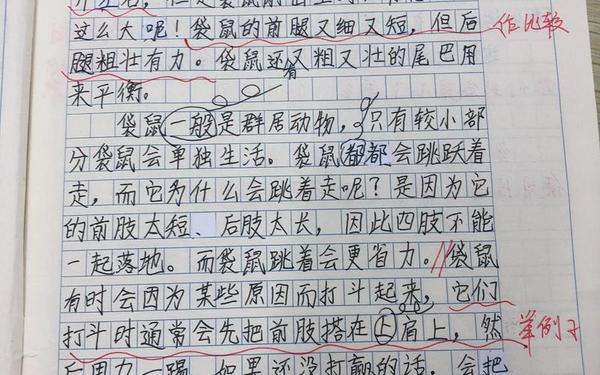 这么大呢！袋鼠的前腿又细又短，但后 作比较
腿粗壮有力。袋鼠还有又粗又壮的尾巴用
来平衡。
袋鼠一般是群居动物，只有较小部
分袋鼠会单独生活。袋鼠都会跳跃着
走，而它为什么会跳着走呢？是因为它
的前肢太短、后肢太长，因此四肢不能
一起落地。而袋鼠跳着会更省力。//袋鼠
有时会因为某些原因而打斗起来，它们
打斗时通常会先把前肢搭在上肩上，然 举例子
后用力一踢，如果还没打赢的话，会把